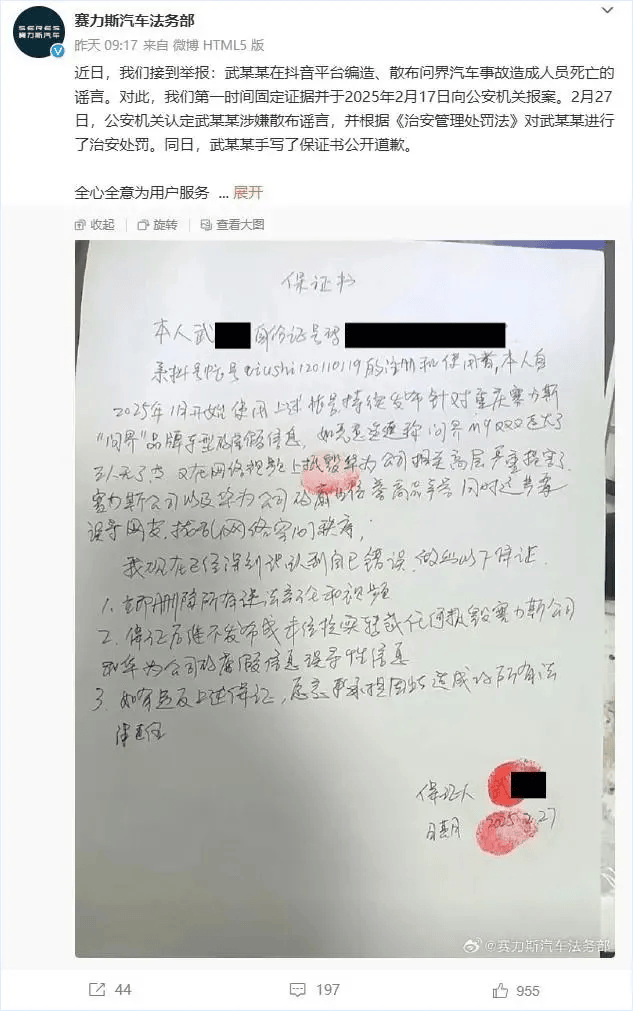 SERES
赛力斯汽车
赛力斯汽车法务部
昨天 09:17 来自 微博 HTML5 版
近日，我们接到举报：武某某在抖音平台编造、散布问界汽车事故造成人员死亡的
谣言。对此，我们第一时间固定证据并于2025年2月17日向公安机关报案。2月27
日，公安机关认定武某某涉嫌散布谣言，并根据《治安管理处罚法》对武某某进行
了治安处罚。同日，武某某手写了保证书公开道歉。
全心全意为用户服务 ... 展开
收起 旋转 查看大图
保证书
本人武 身份证号码
系抖音帐号qiushi120110119的注册和使用者,本人自
2025年1月开始使用上述帐号持续发布针对重庆赛力斯
"问界"品牌车型的虚假信息, 如 问界m9
又在网络视频上抵毁华为公司相关高层严重损害了
赛力斯公司以及华为公司的 商品声誉 同时还严重
误导网友,扰乱网络空间秩序;
我现在已经深刻认识到自己错误,做出以下保证.
1. 立即删除所有违法言论和视频
2. 保证后继不发布或未经核实 任何抵毁赛力斯公司
和华为公司的虚假信息误导性信息
3. 如有违反上述保证,愿意 承担因此造成的所有法
律责任
保证人 武
日期 2025.2.27
@赛力斯汽车法务部
44 197 955